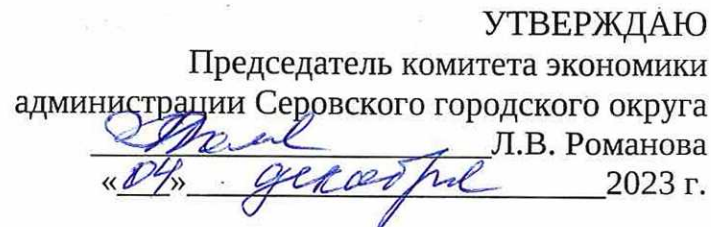 УТВЕРЖДАЮ
Председатель комитета экономики
администрации Серовского городского округа
Л.В. Романова
«04» декабря 2023 г.